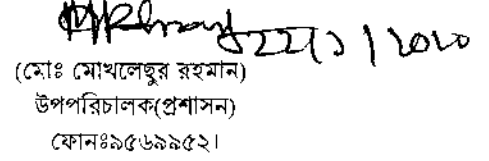 22/1/2020
(মোঃ মোখলেছুর রহমান)
উপপরিচালক(প্রশাসন)
ফোনঃ৯৫৬৯৯৫২।